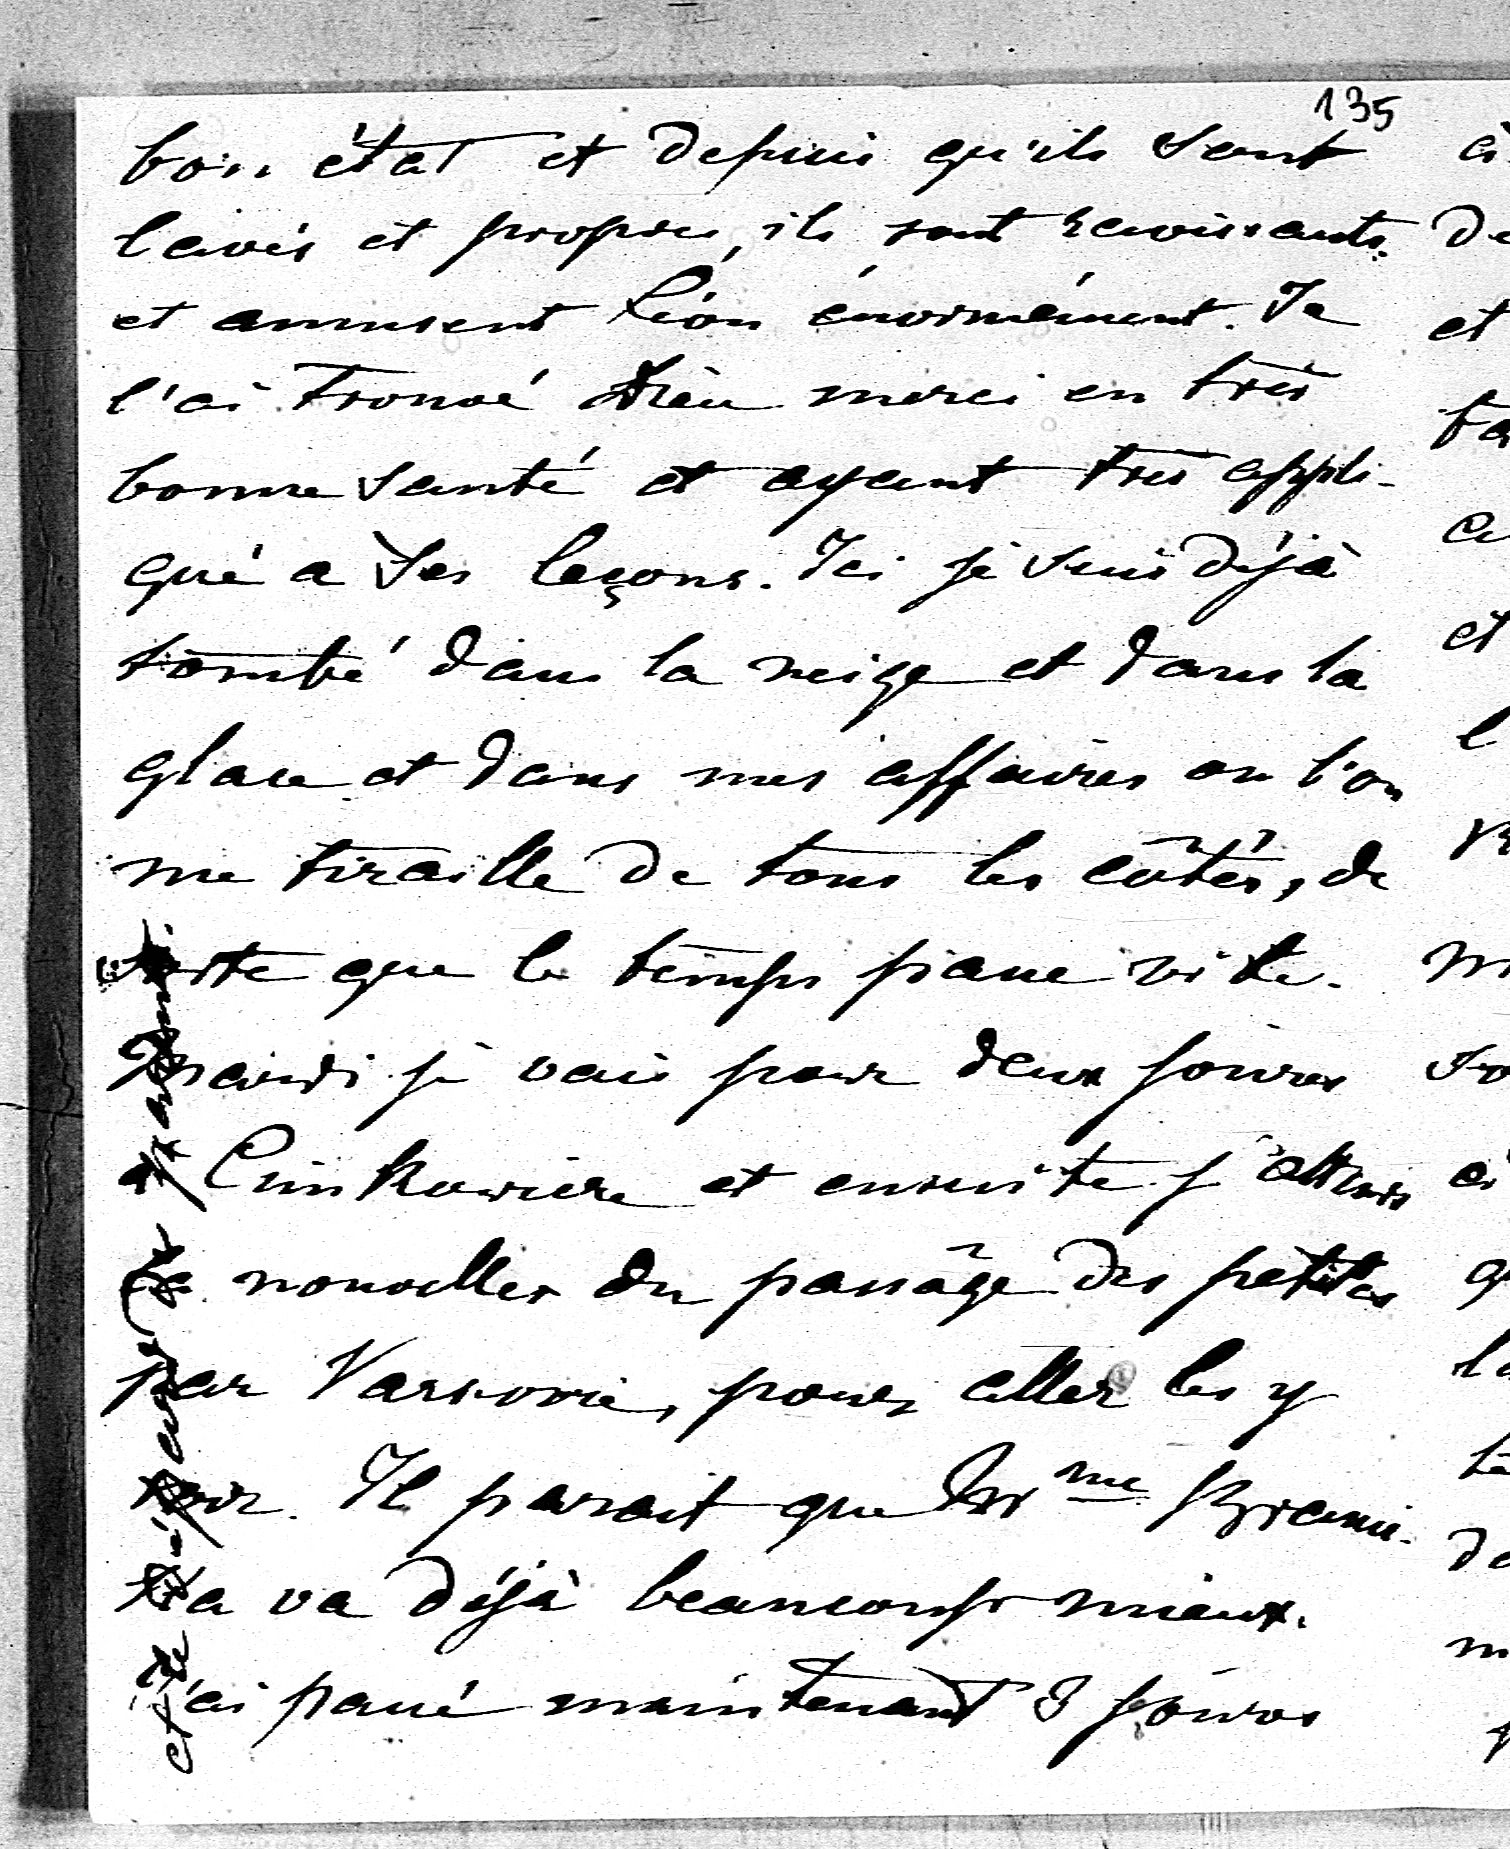 135
bon état et depuis qu'ils sont
lavés et propres, ils sont ravissants
et amusent Léon énormément. Je
l'ai trouvé Dieu merci en très
bonne santé et ayant très appli-
qué a ses leçons. Ici je suis déjà
tombé dans la neige et dans la
glace et dans mes affaires ou l'on
me tiraille de tous les côtés, de
sorte que le temps passe vite.
Mardi je vais pour deux jours
a et ensuite j'attends
de nouvelles du passage des petites
par Varsovie, pour aller les y
voir. Il parait que Mme
va déjà beaucoup mieux.
J'ai passé maintenant 3 jours